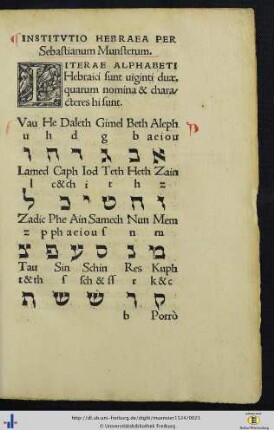 INSTITVTIO HEBRAEA PER
Sebastianum Munsterum.
LITERAE ALPHABETI
Hebraici sunt uiginti duæ,
quarum nomina & chara/
cteres hi sunt.
Vau He Daleth Gimel Beth Aleph
u h d g b aeiou
ו ה ד ג ב א
Lamed Caph Iod Teth Heth Zain
l c&ch i t h z
ל כ י ט ח ז
Zadic Phe Ain Samech Nun Mem
z p ph aeiou s n m
צ פ ע ס נ מ
Tau Sin Schin Res Kuph
t&th s sch & ss r k&c
ת שׂ שׁ ר ק
b Porrò
http://dl.ub.uni-freiburg.de/diglit/munster1524/0025
© Universitätsbibliothek Freiburg